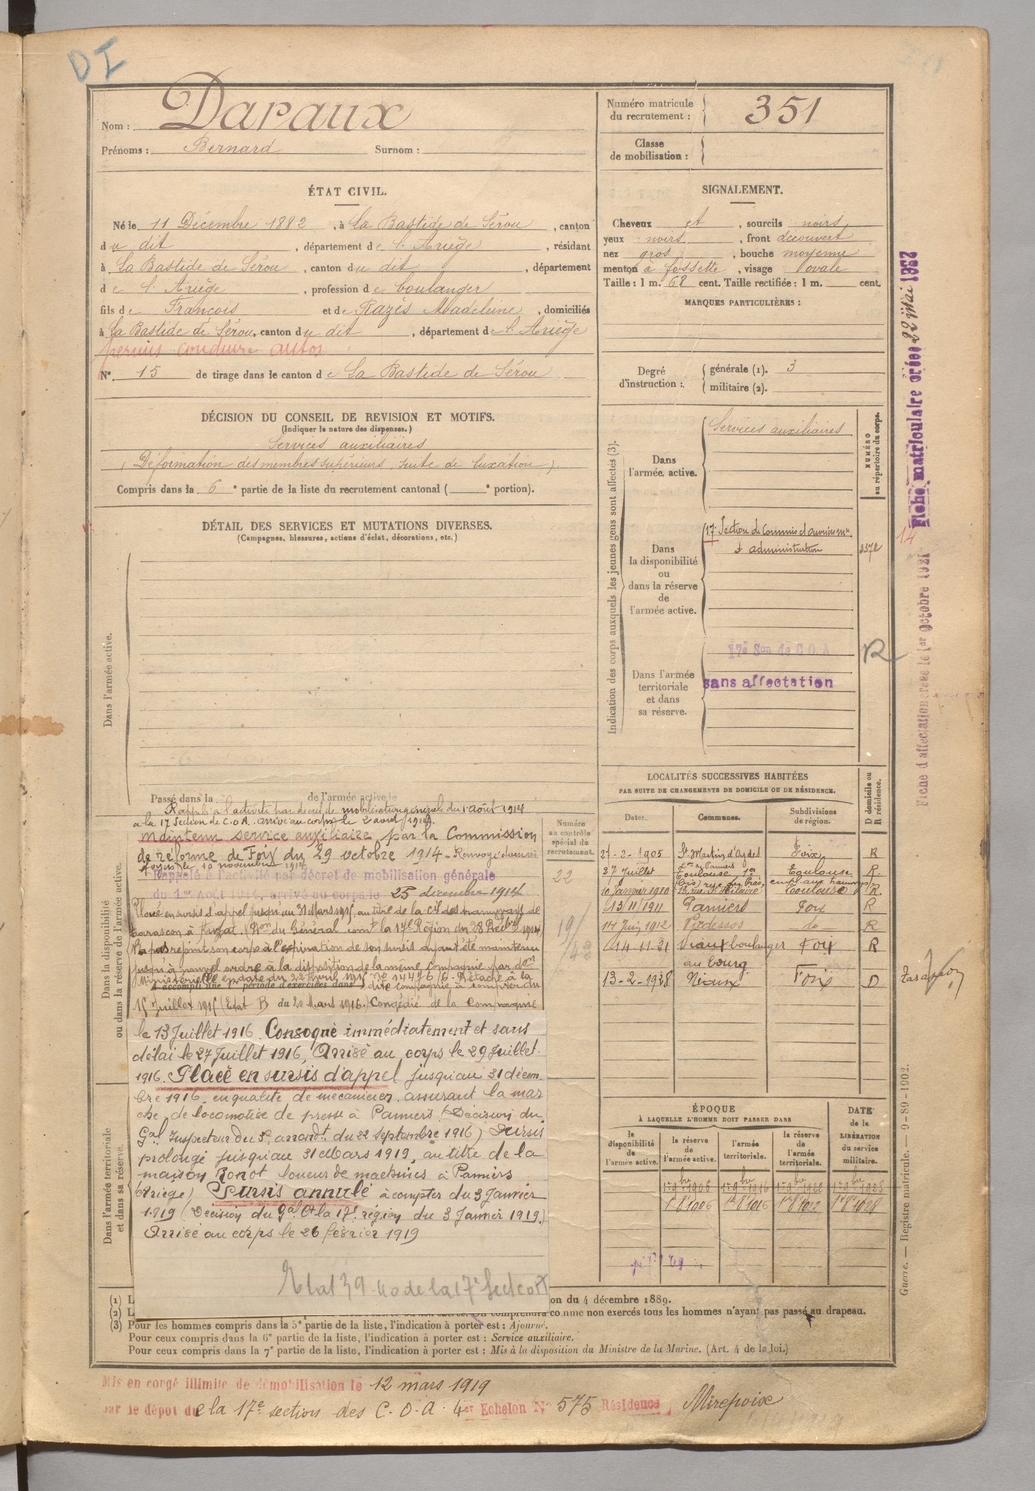 DI
Nom : Daraux
Prénoms : Bernard Surnom :
Numéro matricule du recrutement : 351
Classe de mobilisation :
ÉTAT CIVIL.
Né le 11 Décembre 1882, à La Bastide de Sérou, canton
du dit, département de l'Ariège, résidant
à La Bastide de Sérou, canton du dit, département
de l'Ariège, profession de boulanger
fils de François et de Razés Madeleine, domiciliés
à La Bastide de Sérou, canton du dit, département de l'Ariège
permis conduire autos
N° 15 de tirage dans le canton de La Bastide de Sérou
SIGNALEMENT.
Cheveux et, sourcils noirs
yeux noirs, front découvert
nez gros, bouche moyenne
menton à fossette, visage ovale
Taille : 1 m. 68 cent. Taille rectifiée : 1 m. cent.
MARQUES PARTICULIÈRES :
Degré d'instruction : générale (1). 3
militaire (2).
DÉCISION DU CONSEIL DE REVISION ET MOTIFS.
(Indiquer la nature des dispenses.)
Services auxiliaires
(Déformation des membres supérieurs, suite de luxation)
Compris dans la 6e partie de la liste du recrutement cantonal ( e portion).
DÉTAIL DES SERVICES ET MUTATIONS DIVERSES.
(Campagnes, blessures, actions d'éclat, décorations, etc.)
Dans l'armée active.
Passé dans la de l'armée active le
Rappelé à l'activité par décret de mobilisation générale du 1 août 1914
à la 17 Section de C.O.A.
Maintenu service auxiliaire par la Commission
de réforme de Foix du 29 octobre 1914
Rappelé à l'activité par décret de mobilisation générale
du 1er Août 1914, arrivé au corps le 23 décembre 1914
Placé en sursis d'appel jusqu'au 31 Mars 1915, au titre de la Cie des tramways de
N'a pas rejoint son corps à l'expiration de son sursis ayant été maintenu
jusqu'à nouvel ordre à la disposition de la même Compagnie par
15 Juillet 1915 (Etat B du 20 Mars 1916. Congédié de la Compagnie
le 13 Juillet 1916. Consoqué immédiatement et sans
délai le 27 Juillet 1916, Arrivé au corps le 29 Juillet
1916. Placé en sursis d'appel jusqu'au 31 décem-
bre 1916, en qualité de mécanicien, assurant la mar
che de locomotive de presse à Pamiers (Décision du
Gal Inspecteur du 5e arrondt du 22 septembre 1916) Sursis
prolongé jusqu'au 31 Mars 1919, au titre de la
maison Bonot loueur de machines à Pamiers
(Ariège) Sursis annulé à compter du 3 Janvier
1919 (Décision du Gal Ct la 17e région du 3 Janvier 1919)
Arrivé au corps le 26 février 1919
Etat 39
Dans la disponibilité ou dans la réserve de l'armée active.
Dans l'armée territoriale et dans sa réserve.
Numéro au contrôle spécial du recrutement.
22
19/43
Indication des corps auxquels les jeunes gens sont affectés (3).
NUMÉRO au répertoire du corps.
Dans l'armée active.
Services auxiliaires
Dans la disponibilité ou dans la réserve de l'armée active.
17 Section de Commis d'ouvriers mres
d'administration
Dans l'armée territoriale et dans sa réserve.
17e Son de C.O.A
sans affectation
R
LOCALITÉS SUCCESSIVES HABITÉES
PAR SUITE DE CHANGEMENTS DE DOMICILE OU DE RÉSIDENCE.
Dates. Communes. Subdivisions de région. D domicile ou R résidence.
27-2-1905 Foix R
27 Juillet Toulouse Toulouse R
10 Janvier 1910 Toulouse R
13/11/1911 Pamiers Foix R
14 Juin 1912 Vicdessos do R
14.11.21 Vieux boulanger Foix R
au bourg
13-2-1928 Niaux Foix D
ÉPOQUE
À LAQUELLE L'HOMME DOIT PASSER DANS
la disponibilité de l'armée active. la réserve de l'armée active. l'armée territoriale. la réserve de l'armée territoriale. DATE de la LIBÉRATION du service militaire.
Fiche matriculaire créée 22 Mai 1922
Fiche d'affectation créée le 1er octobre 1921
Guerre. — Registre matricule. — 9-89-1902.
(1) L on du 4 décembre 1889.
(2) L comme non exercés tous les hommes n'ayant pas passé au drapeau.
(3) Pour les hommes compris dans la 5e partie de la liste, l'indication à porter est : Ajourné.
Pour ceux compris dans la 6e partie de la liste, l'indication à porter est : Service auxiliaire.
Pour ceux compris dans la 7e partie de la liste, l'indication à porter est : Mis à la disposition du Ministre de la Marine. (Art. 4 de la loi.)
Mis en congé illimité de démobilisation le 12 mars 1919
par le dépôt de la 17e section des C.O.A 4er Echelon N° 575 Résidence Mirepoix